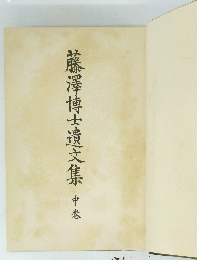 藤澤博士遺文集
中巻